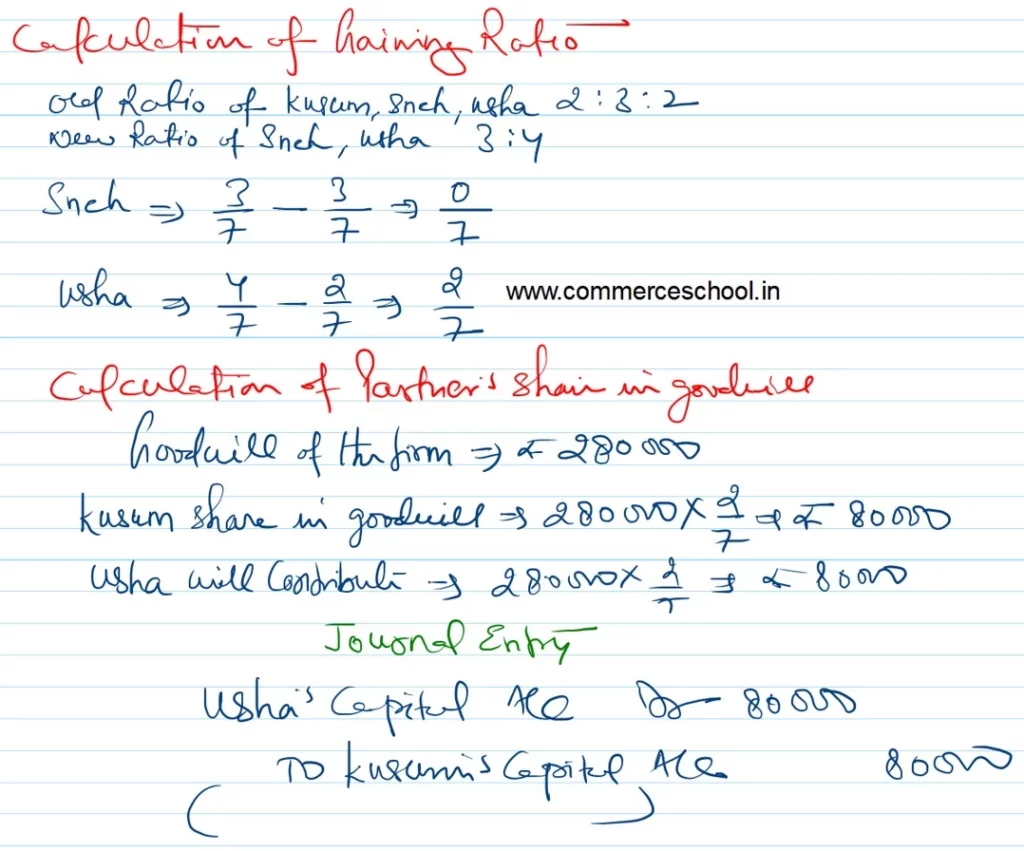 Calculation of Gaining Ratio
Old Ratio of Kusum, Sneh, Usha 2 : 3 : 2
New Ratio of Sneh, Usha 3 : 4
Sneh ⇒ 3/7 − 3/7 ⇒ 0/7
Usha ⇒ 4/7 − 2/7 ⇒ 2/7
www.commerceschool.in
Calculation of Partner's Share in goodwill
Goodwill of the firm ⇒ ₹ 280000
Kusum share in goodwill ⇒ 280000 × 2/7 ⇒ ₹ 80000
Usha will Contribute ⇒ 280000 × 2/7 ⇒ ₹ 80000
Journal Entry
Usha's Capital A/c Dr 80000
To Kusum's Capital A/c 80000
( )